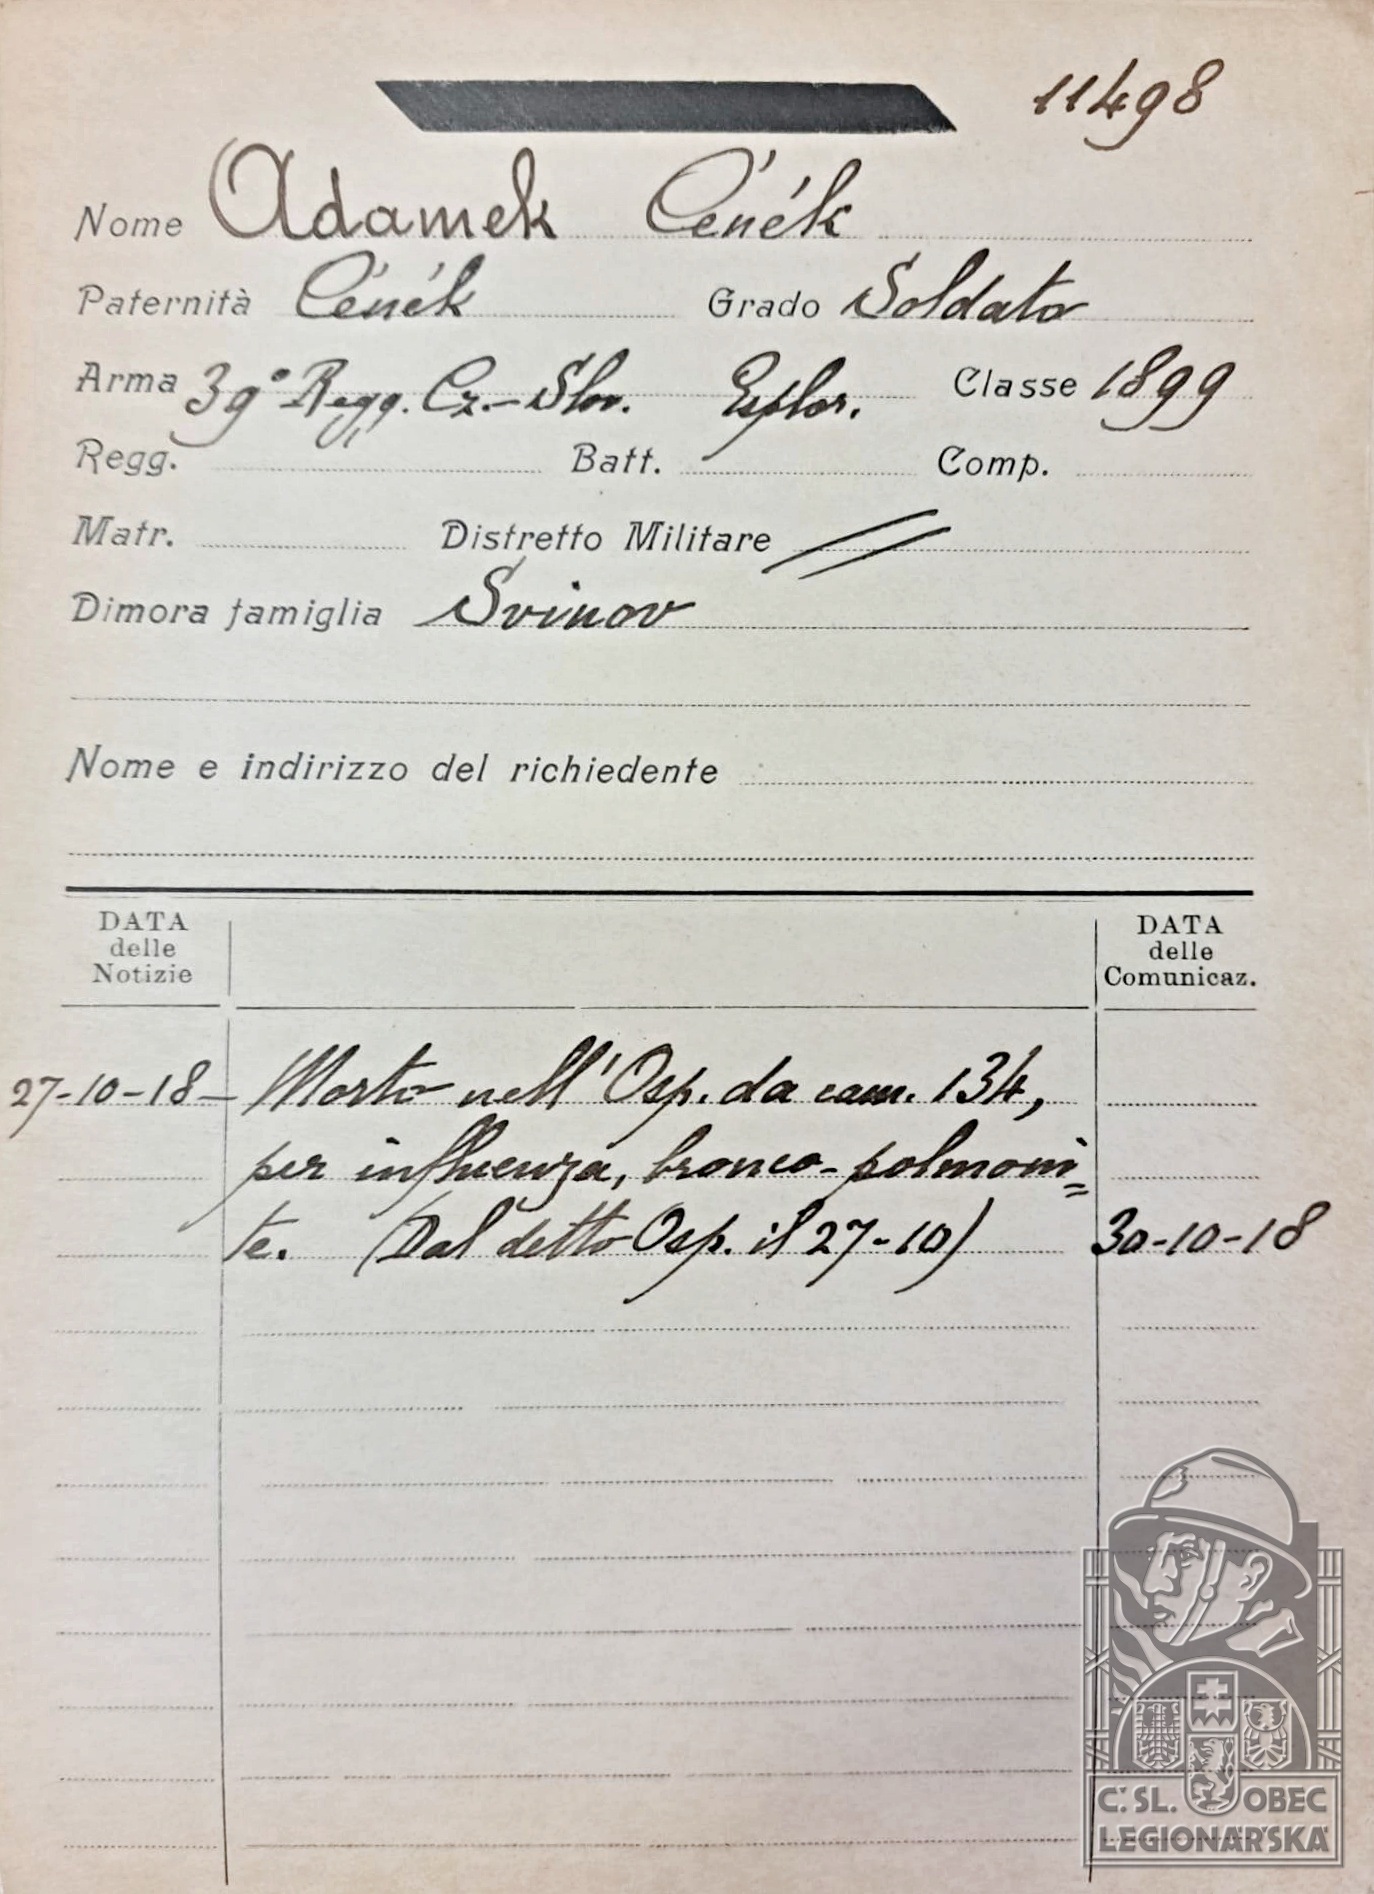 11498
Nome Adamek Cénék
Paternità Cénék Grado Soldato
Arma 39° Regg. Cz.-Slov. Esplor. Classe 1899
Regg. Batt. Comp.
Matr. Distretto Militare //
Dimora famiglia Svinov
Nome e indirizzo del richiedente
DATA delle Notizie DATA delle Comunicaz.
27-10-18- Morto nell' Osp. da cam. 134,
per influenza, bronco-polmoni=
te. (Dal detto Osp. il 27-10) 30-10-18
Č. SL. OBEC
LEGIONÁŘSKÁ